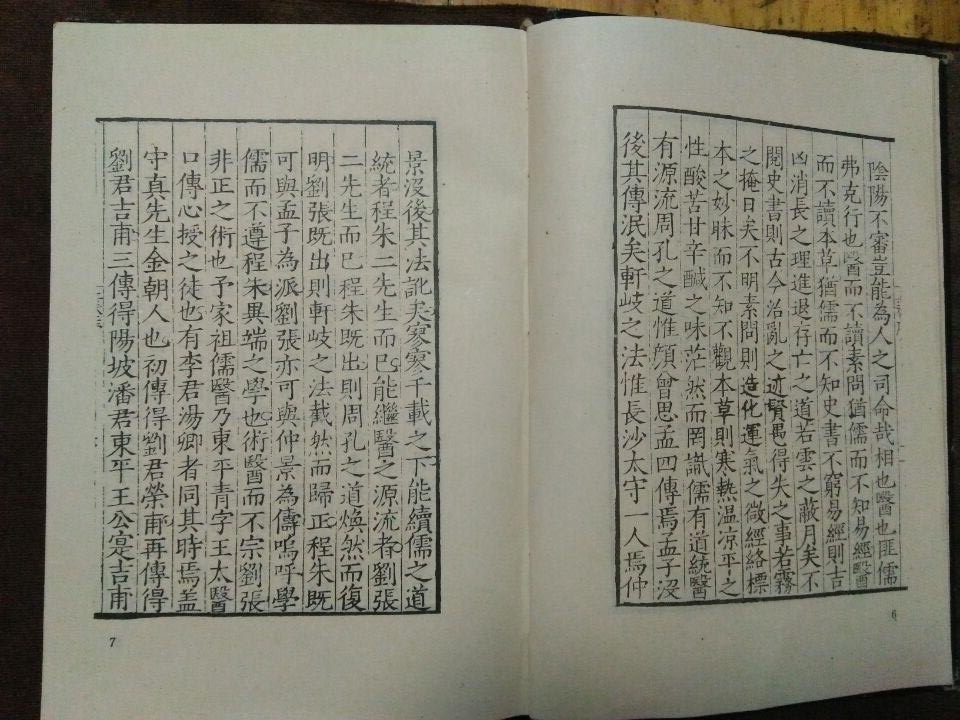 陰陽不審豈能為人之司命哉相也醫也匪儒
弗克行也醫而不讀素問猶儒而不知易經醫
而不讀本草猶儒而不知史書不窮易經則吉
凶消長之理進退存亡之道若雲之蔽月矣不
閱史書則古今治亂之迹賢愚得失之事若霧
之掩日矣不明素問則造化運氣之微經絡標
本之妙昧而不知不觀本草則寒熱温凉平之
性酸苦甘辛鹹之味茫然而罔識儒有道統醫
有源流周孔之道惟顏曾思孟四傳焉孟子沒
後其傳泯矣軒岐之法惟長沙太守一人焉仲
6
景沒後其法訛矣寥寥千載之下能續儒之道
統者程朱二先生而巳能繼醫之源流者劉張
二先生而巳程朱既出則周孔之道煥然而復
明劉張既出則軒岐之法截然而歸正程朱既
可與孟子為派劉張亦可與仲景為儔嗚呼學
儒而不遵程朱異端之學也術醫而不宗劉張
非正之術也予家祖儒醫乃東平青字王太醫
口傳心授之徒也有李君湯卿者同其時焉盖
守真先生金朝人也初傳得劉君榮甫再傳得
劉君吉甫三傳得陽坡潘君東平王公寔吉甫
7